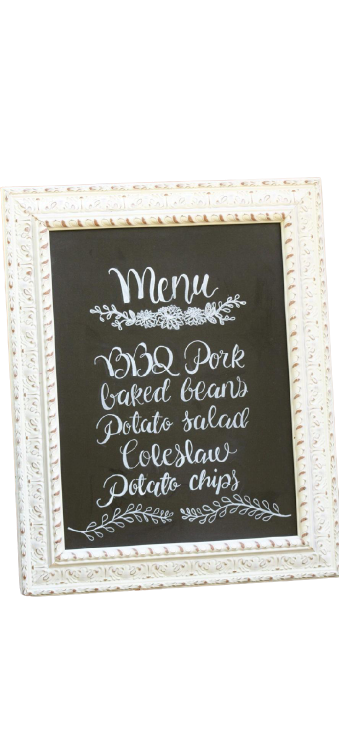 Menu
BBQ Pork
baked beans
Potato salad
Coleslaw
Potato chips